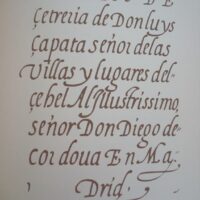 DE
Çetreria de Don luys
Çapata señor delas
Villas y lugares del-
çehel Al Illustrissimo,
señor Don Diego de-
cordoua En Ma,
Drid.